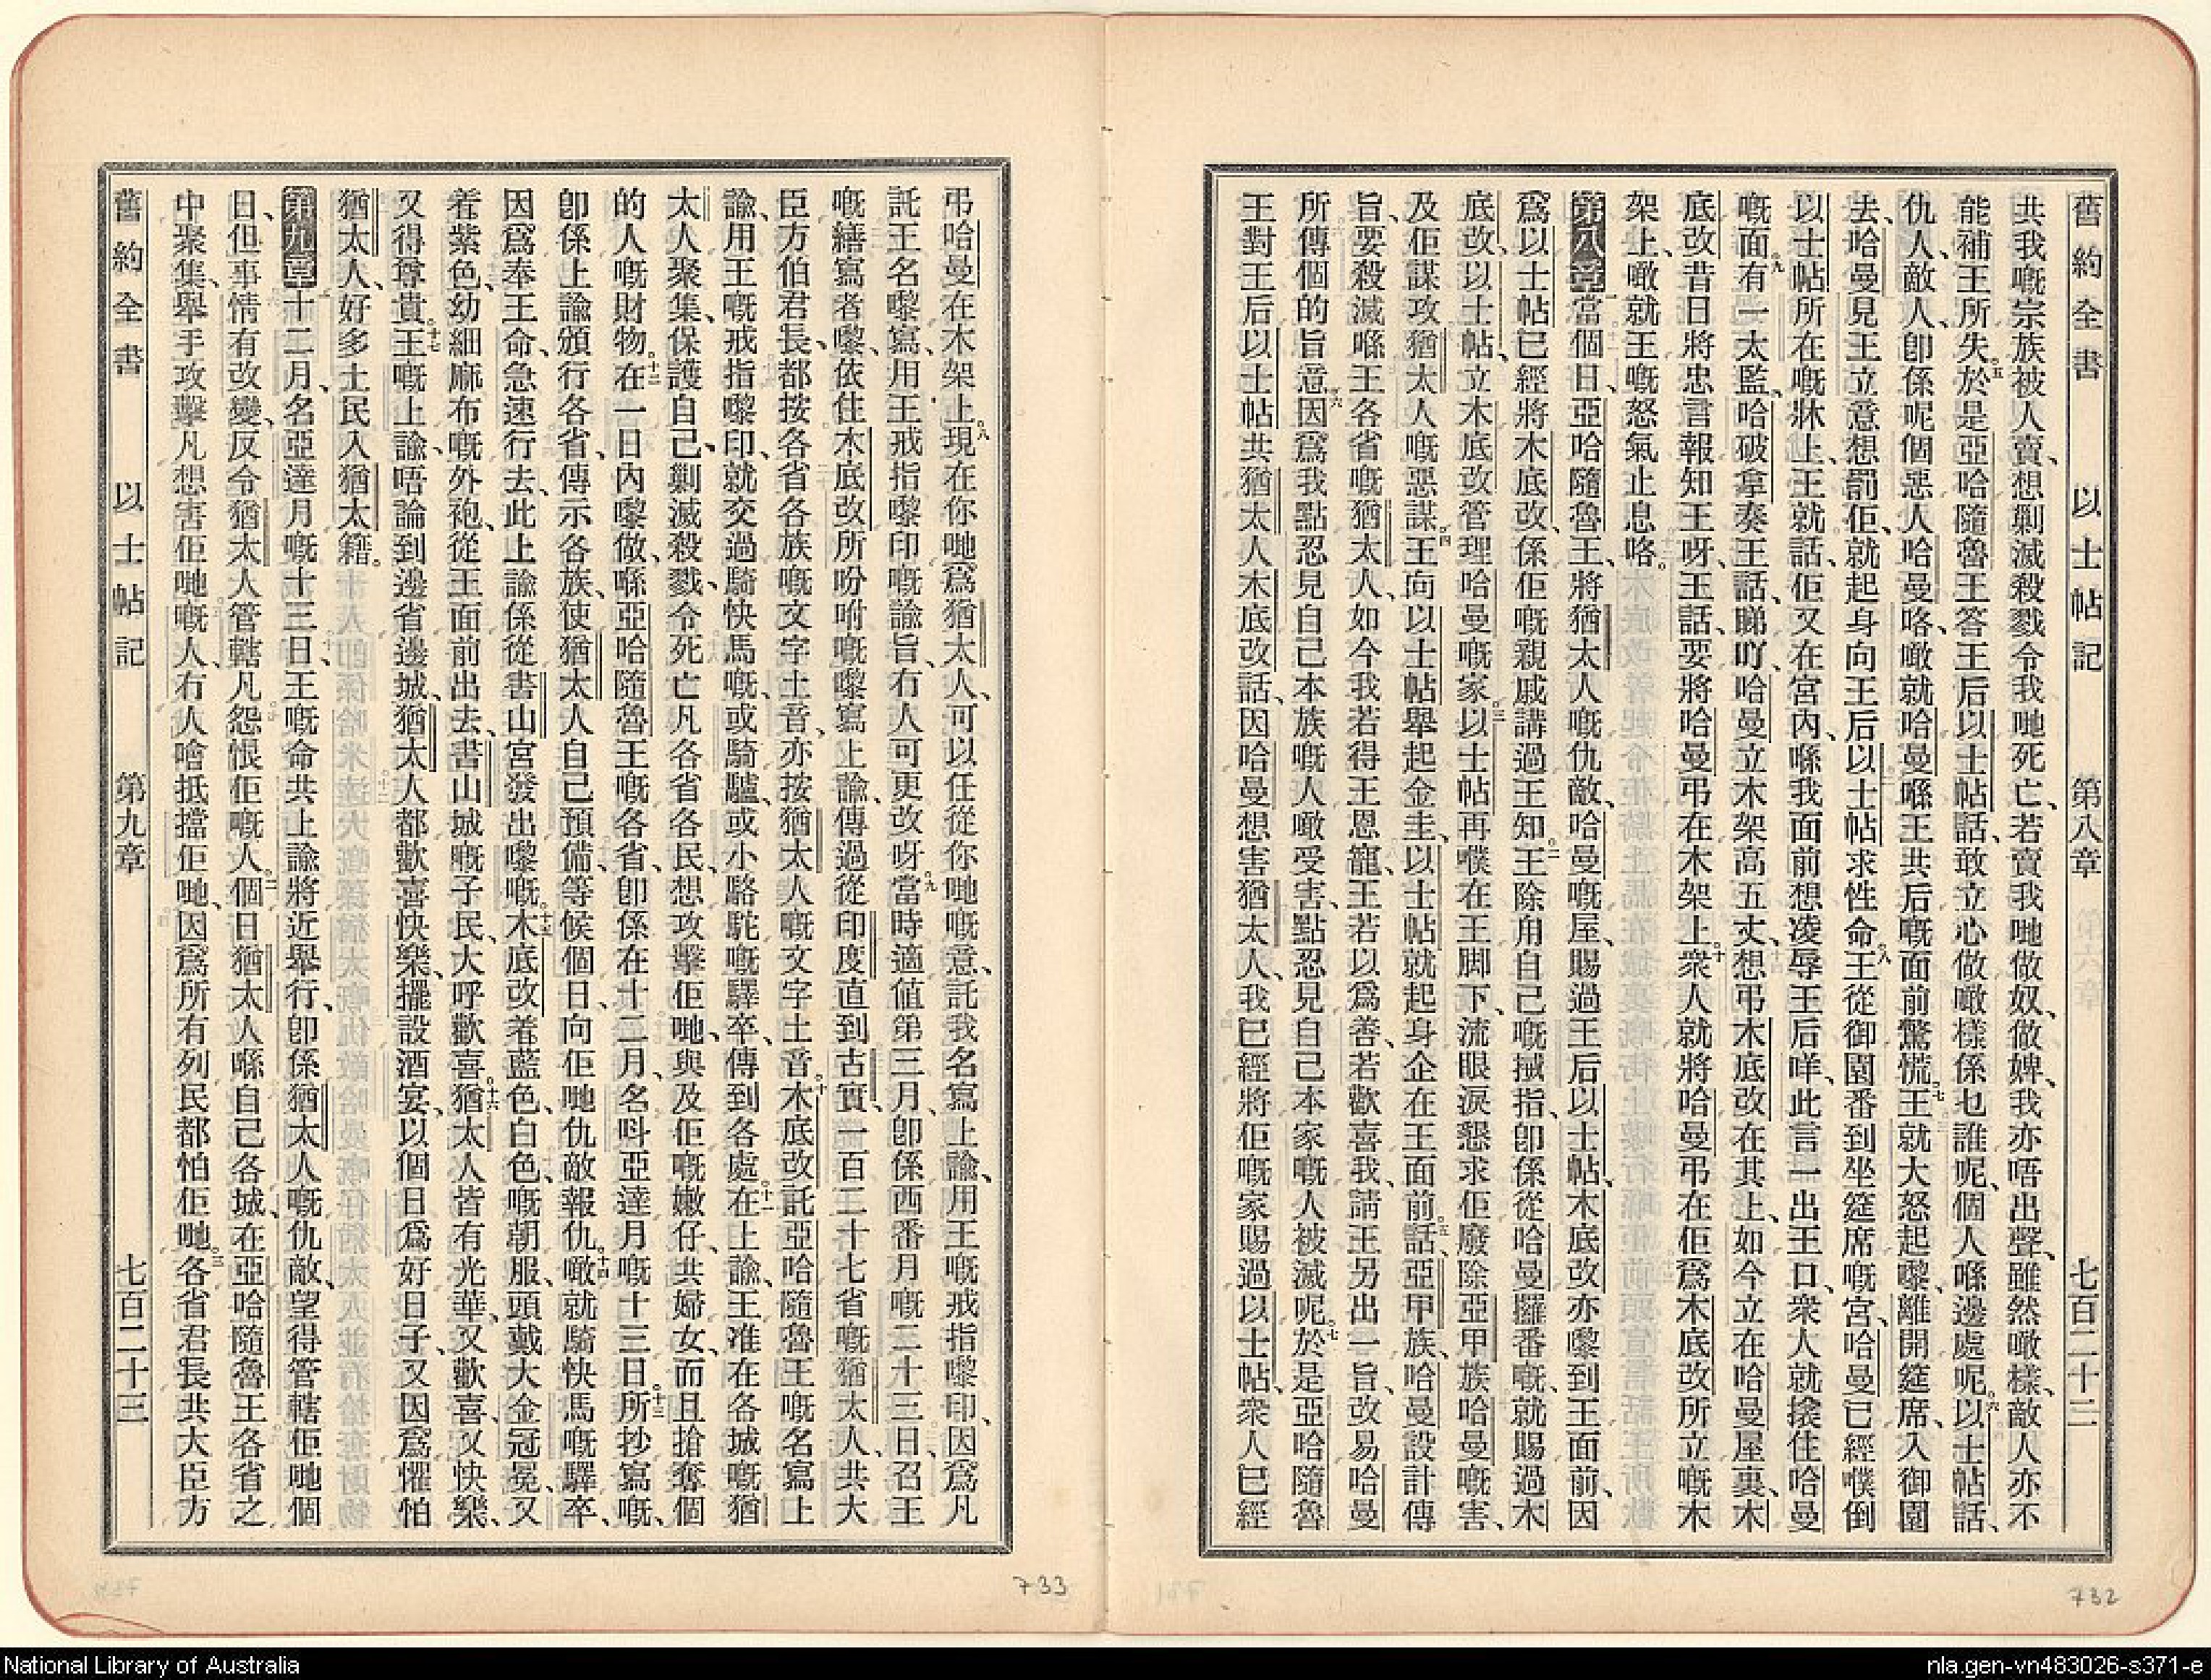 舊約全書 以士帖記 第八章 七百二十二
共我嘅宗族被人賣、想剿滅殺戮令我哋死亡、若賣我哋做奴、做婢、我亦唔出聲、雖然噉樣、敵人亦不
能補王所失。五於是亞哈隨魯王答王后以士帖話、敢立心做噉樣係乜誰呢、個人喺邊處呢。六以士帖話、
仇人、敵人、卽係呢個惡人哈曼咯、噉就哈曼喺王共后嘅面前驚慌。七王就大怒起嚟、離開筵席、入御園
去、哈曼見王立意想罰佢、就起身向王后以士帖求性命。八王從御園番到坐筵席嘅宮、哈曼已經噗倒
以士帖所在嘅牀上、王就話、佢又在宮內、喺我面前想凌辱王后咩、此言一出王口、衆人就揞住哈曼
嘅面。九有一太監、哈破拿奏王話、睇吖、哈曼立木架高五丈、想弔木底改在其上、如今立在哈曼屋裏、木
底改昔日將忠言報知王呀、王話、要將哈曼弔在木架上。十衆人就將哈曼弔在佢爲木底改所立嘅木
架上、噉就王嘅怒氣止息咯。
第八章 一當個日、亞哈隨魯王、將猶太人嘅仇敵、哈曼嘅屋、賜過王后以士帖、木底改亦嚟到王面前、因
爲以士帖已經將木底改、係佢嘅親戚講過王知。二王除用自己嘅搣指、卽係從哈曼攞番嘅、就賜過木
底改、以士帖、立木底改管理哈曼嘅家。三以士帖再噗在王脚下、流眼淚懇求佢廢除亞甲族哈曼嘅害、
及佢謀攻猶太人嘅惡謀。四王向以士帖舉起金圭、以士帖就起身企在王面前。五話、亞甲族、哈曼設計傳
旨、要殺滅喺王各省嘅猶太人、如今我若得王恩寵、王若以爲善、若歡喜我、請王另出一旨、改易哈曼
所傳個的旨意。六因爲我點忍見自己本族嘅人噉受害、點忍見自己本家嘅人被滅呢。七於是亞哈隨魯
王對王后以士帖共猶太人木底改話、因哈曼想害猶太人、我已經將佢嘅家賜過以士帖、衆人已經
弔哈曼在木架上。八現在你哋爲猶太人、可以任從你哋嘅意、託我名寫上諭、用王嘅戒指嚟印、因爲凡
託王名嚟寫、用王戒指嚟印嘅諭旨、冇人可更改呀。九當時適值第三月、卽係西番月嘅二十三日、召王
嘅繕寫者嚟、依住木底改所吩咐嘅嚟寫上諭、傳過從印度直到古實、一百二十七省嘅猶太人、共大
臣方伯君長、都按各省各族嘅文字土音、亦按猶太人嘅文字土音。十木底改託亞哈隨魯王嘅名寫上
諭、用王嘅戒指嚟印、就交過騎快馬嘅、或騎驢、或小駱駝嘅驛卒、傳到各處。十一在上諭、王准在各城嘅猶
太人聚集、保護自己、剿滅殺戮、令死亡凡各省各民、想攻擊佢哋、與及佢嘅嫩仔、共婦女、而且搶奪個
的人嘅財物。十二在一日內嚟做、喺亞哈隨魯王嘅各省、卽係在十二月、名呌亞達月嘅十三日。十三所抄寫嘅、
卽係上諭頒行各省、傳示各族、使猶太人自己預備、等候個日、向佢哋仇敵報仇。十四噉就騎快馬嘅驛卒、
因爲奉王命、急速行去、此上諭係從書山宮發出嚟嘅。十五木底改着藍色、白色嘅朝服、頭戴大金冠冕、又
着紫色、幼細麻布嘅外袍、從王面前出去、書山城嘅子民、大呼歡喜。十六猶太人皆有光華、又歡喜、又快樂、
又得尊貴。十七王嘅上諭、唔論到邊省邊城、猶太人都歡喜快樂、擺設酒宴、以個日爲好日子、又因爲懼怕
猶太人、好多士民入猶太籍。
第九章 一十二月、名亞達月嘅十三日、王嘅命共上諭將近舉行、卽係猶太人嘅仇敵、望得管轄佢哋個
日、但事情有改變、反令猶太人管轄凡怨恨佢嘅人。二個日猶太人喺自己各城、在亞哈隨魯王各省之
中聚集、舉手攻擊凡想害佢哋嘅人、冇人噲抵擋佢哋、因爲所有列民都怕佢哋。三各省君長共大臣方
舊約全書 以士帖記 第九章 七百二十三
733
732
National Library of Australia
nla.gen-vn483026-s371-e